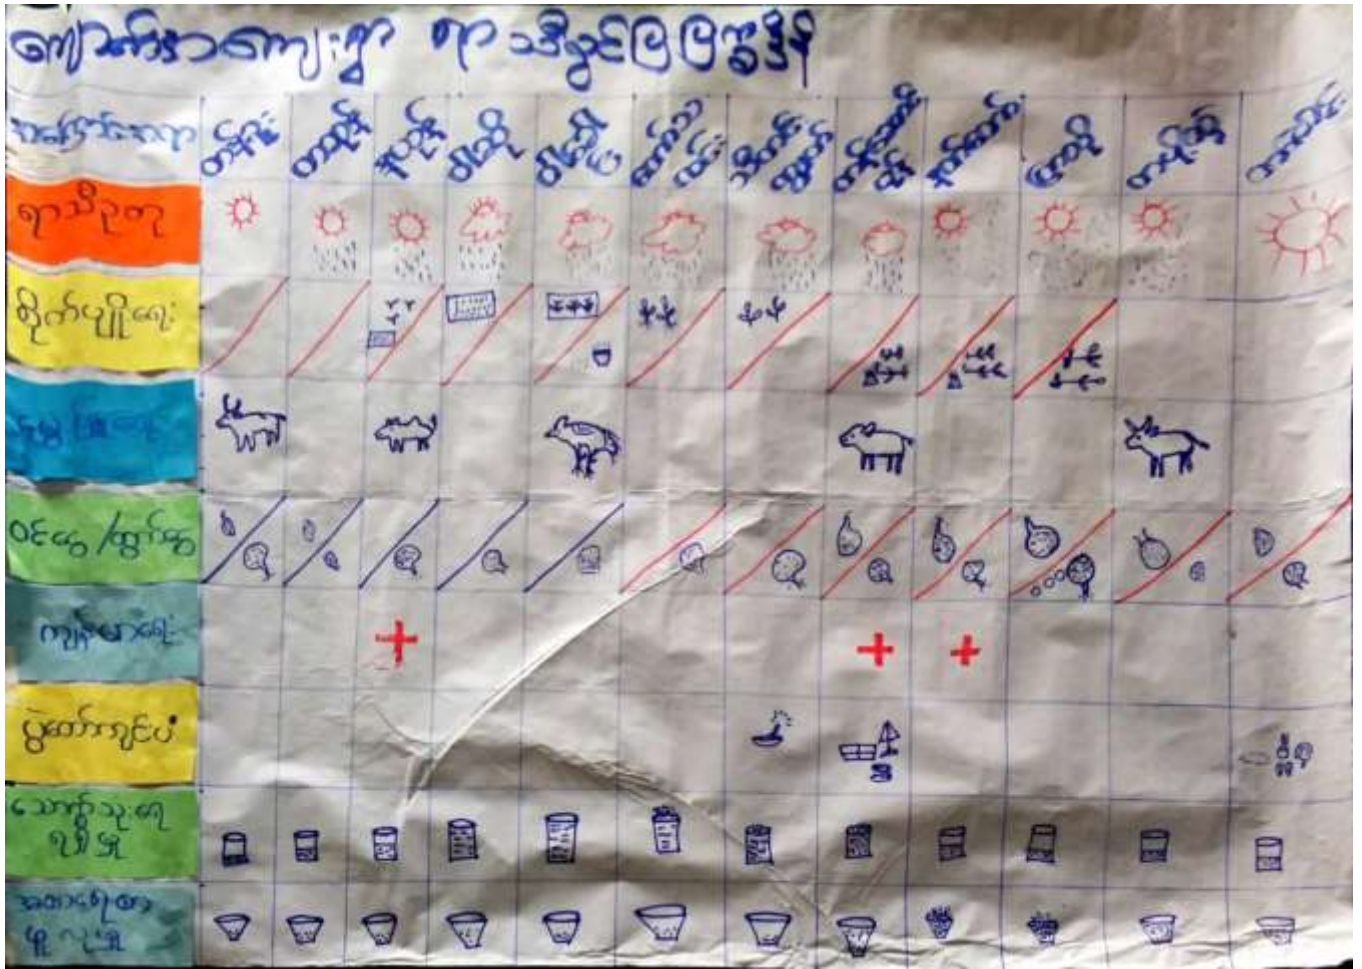 ရာသီခွင်ပြ ပြက္ခဒိန်
အကြောင်းအရာ တန်ခူး ကဆုန် နယုန် ဝါဆို ဝါခေါင် တော်သလင်း သီတင်းကျွတ် တန်ဆောင်မုန်း နတ်တော် ပြာသို တပို့တွဲ တပေါင်း
ရာသီဥတု
စိုက်ပျိုးရေး
မွေးမြူရေး
ဝင်ငွေ/ထွက်ငွေ
ကျန်းမာရေး
ပွဲတော်ကျင်းပ
သောက်သုံးရေ
ရရှိမှု
ဖူလုံမှု